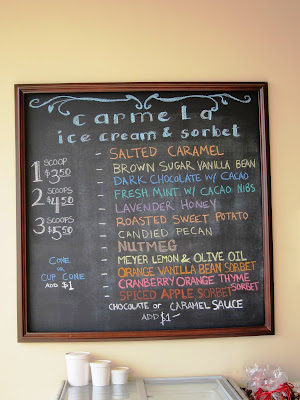 carmela
ice cream & sorbet
1 SCOOP $3.50
2 SCOOPS $4.50
3 SCOOPS $5.50
CONE
or
CUP CONE
ADD $1
- SALTED CARAMEL
- BROWN SUGAR VANILLA BEAN
- DARK CHOCOLATE W/ CACAO
- FRESH MINT W/ CACAO NIBS
- LAVENDER HONEY
- ROASTED SWEET POTATO
- CANDIED PECAN
- NUTMEG
- MEYER LEMON & OLIVE OIL
- ORANGE VANILLA BEAN SORBET
- CRANBERRY ORANGE THYME SORBET
- SPICED APPLE SORBET
CHOCOLATE or CARAMEL SAUCE
ADD $1-